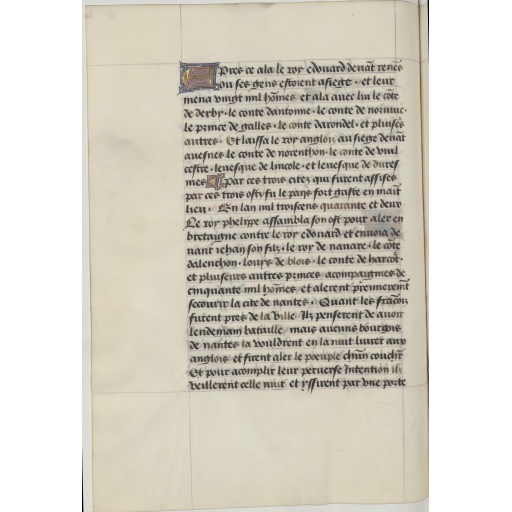 Apres ce ala le roy edouard deuāt renes
ou ses gens estoient asiege · et leur
mena vingt mil hōmes et ala auec lui le cōte
de derby · le conte dantonne · le conte de noruuic ·
le prince de galles · le conte darondel · et pluise^rs
autres · Et laissa le roy anglois au siege deuāt
auesnes le conte de norenthon · le conte de vvil
cestre · leuesque de lincole · et leuesque de dures
mes par ces trois citez qui furent assises
par ces trois ostz fu le pays fort gaste en maīt
lieu · En lan mil troiscens quarante et deux
Le roy phelippe assambla son ost pour aler en
bretaigne contre le roy edouard et enuoia de
uant iehan son filz · le roy de nauare · le cōte
dalenchon · loiys de blois · le conte de harcōt ·
et pluiseurs autres princes acompaigniés de
cinquante mil hōmes et alerent premieremēt
secourir la cite de nantes · Quant les frācois
furent pres de la ville Ilz penserent de auoir
lendemain bataille mais aucuns bourgois
de nantes la vouldrent en la nuit liurer aux
anglois et firent aler le poeuple chūn couchr̄
Et pour acomplir leur peruerse Intention ilz
veillerent celle nuit et yssirent par vne porte